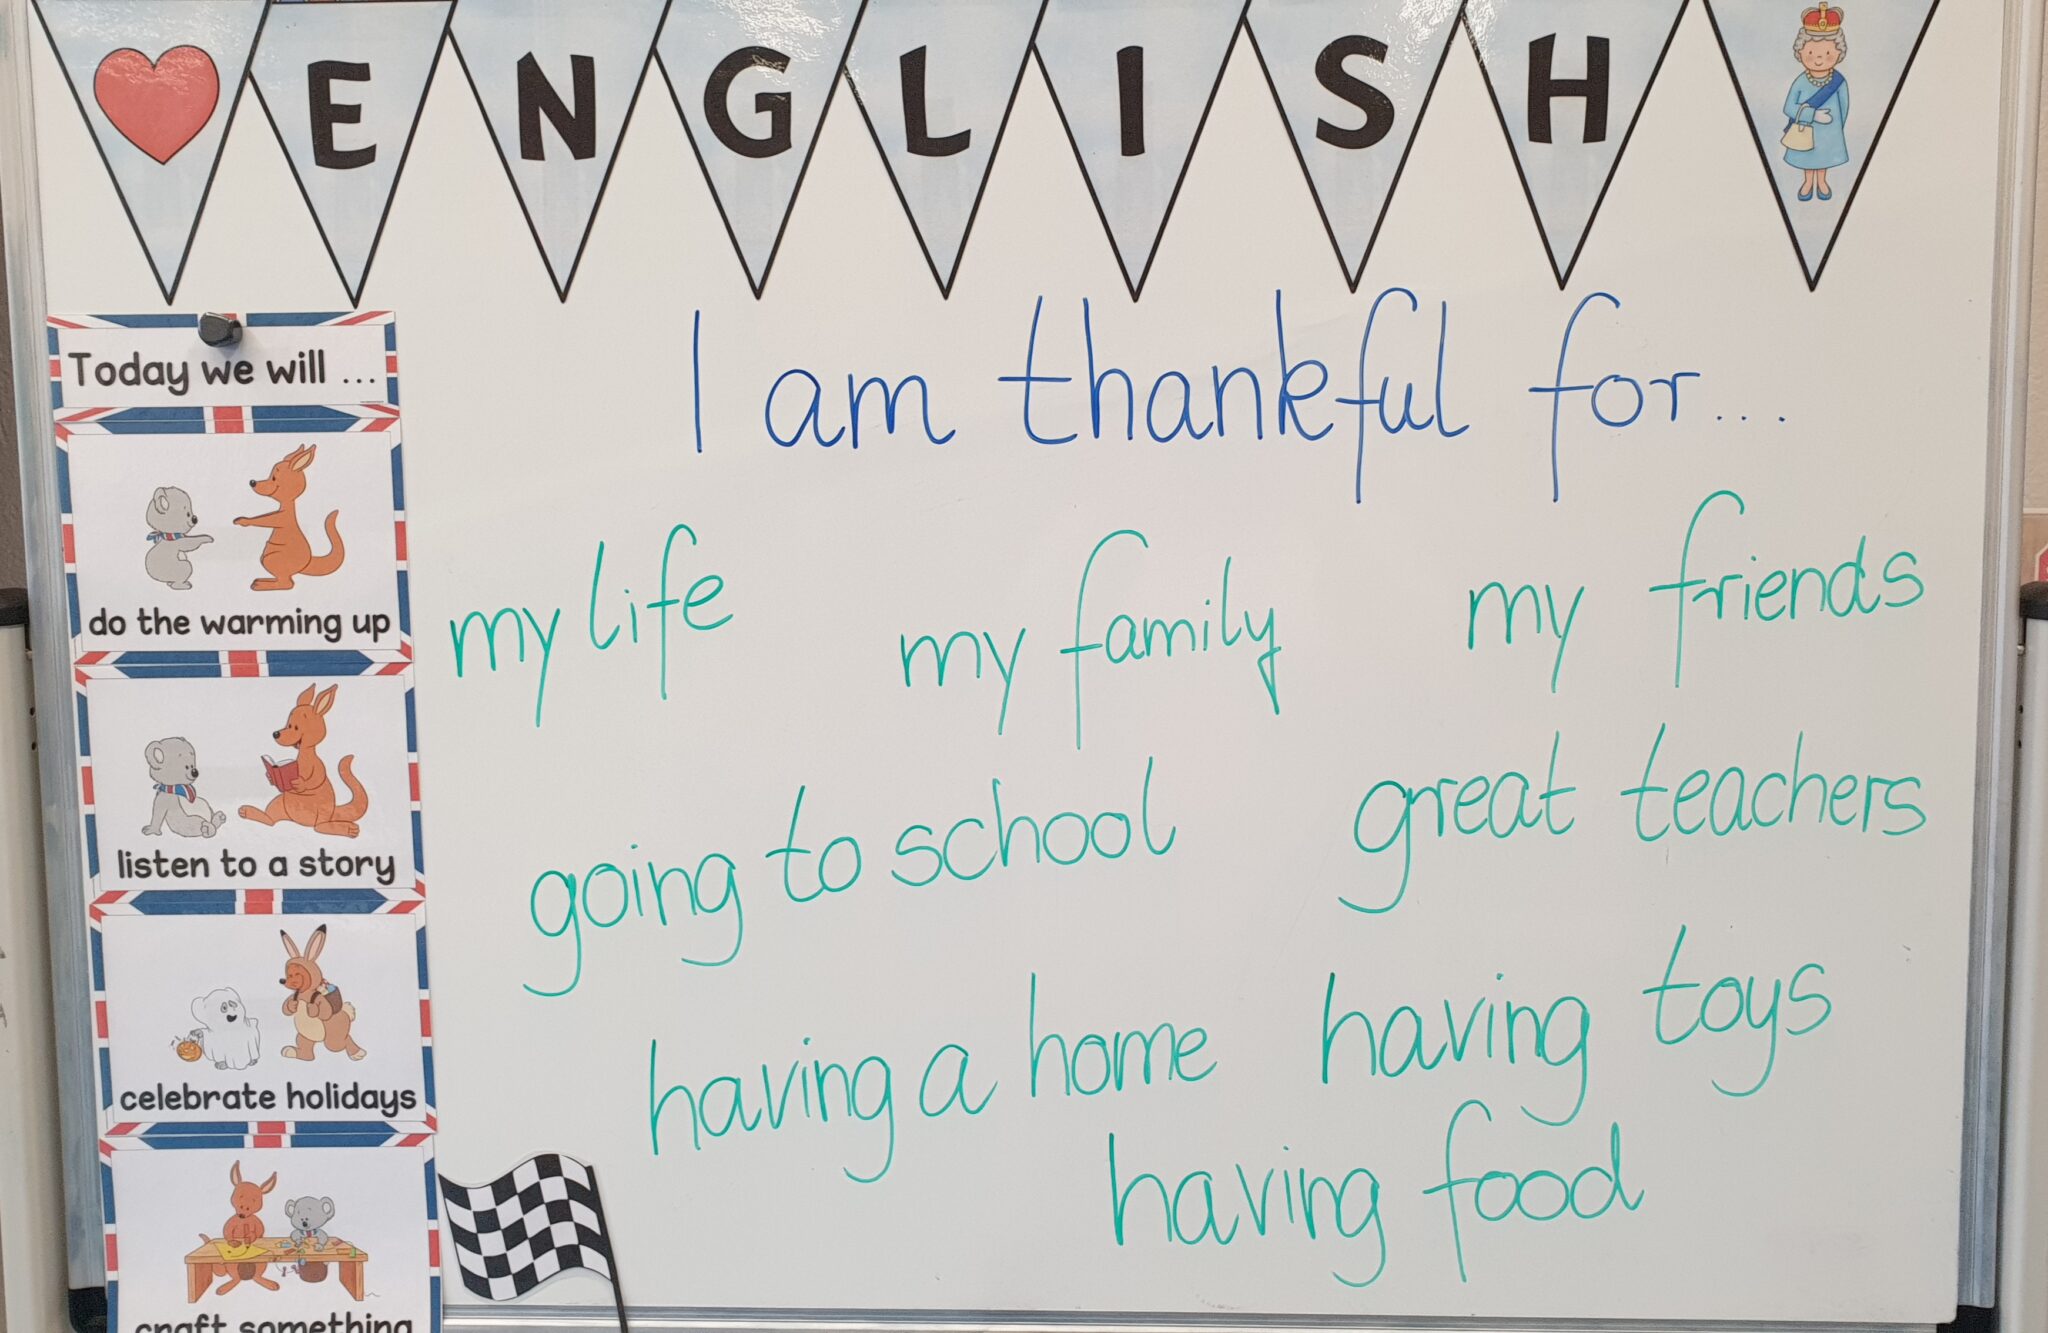 ENGLISH
Today we will ...
do the warming up
listen to a story
celebrate holidays
craft something
I am thankful for...
my life my family my friends
going to school great teachers
having a home having toys
having food